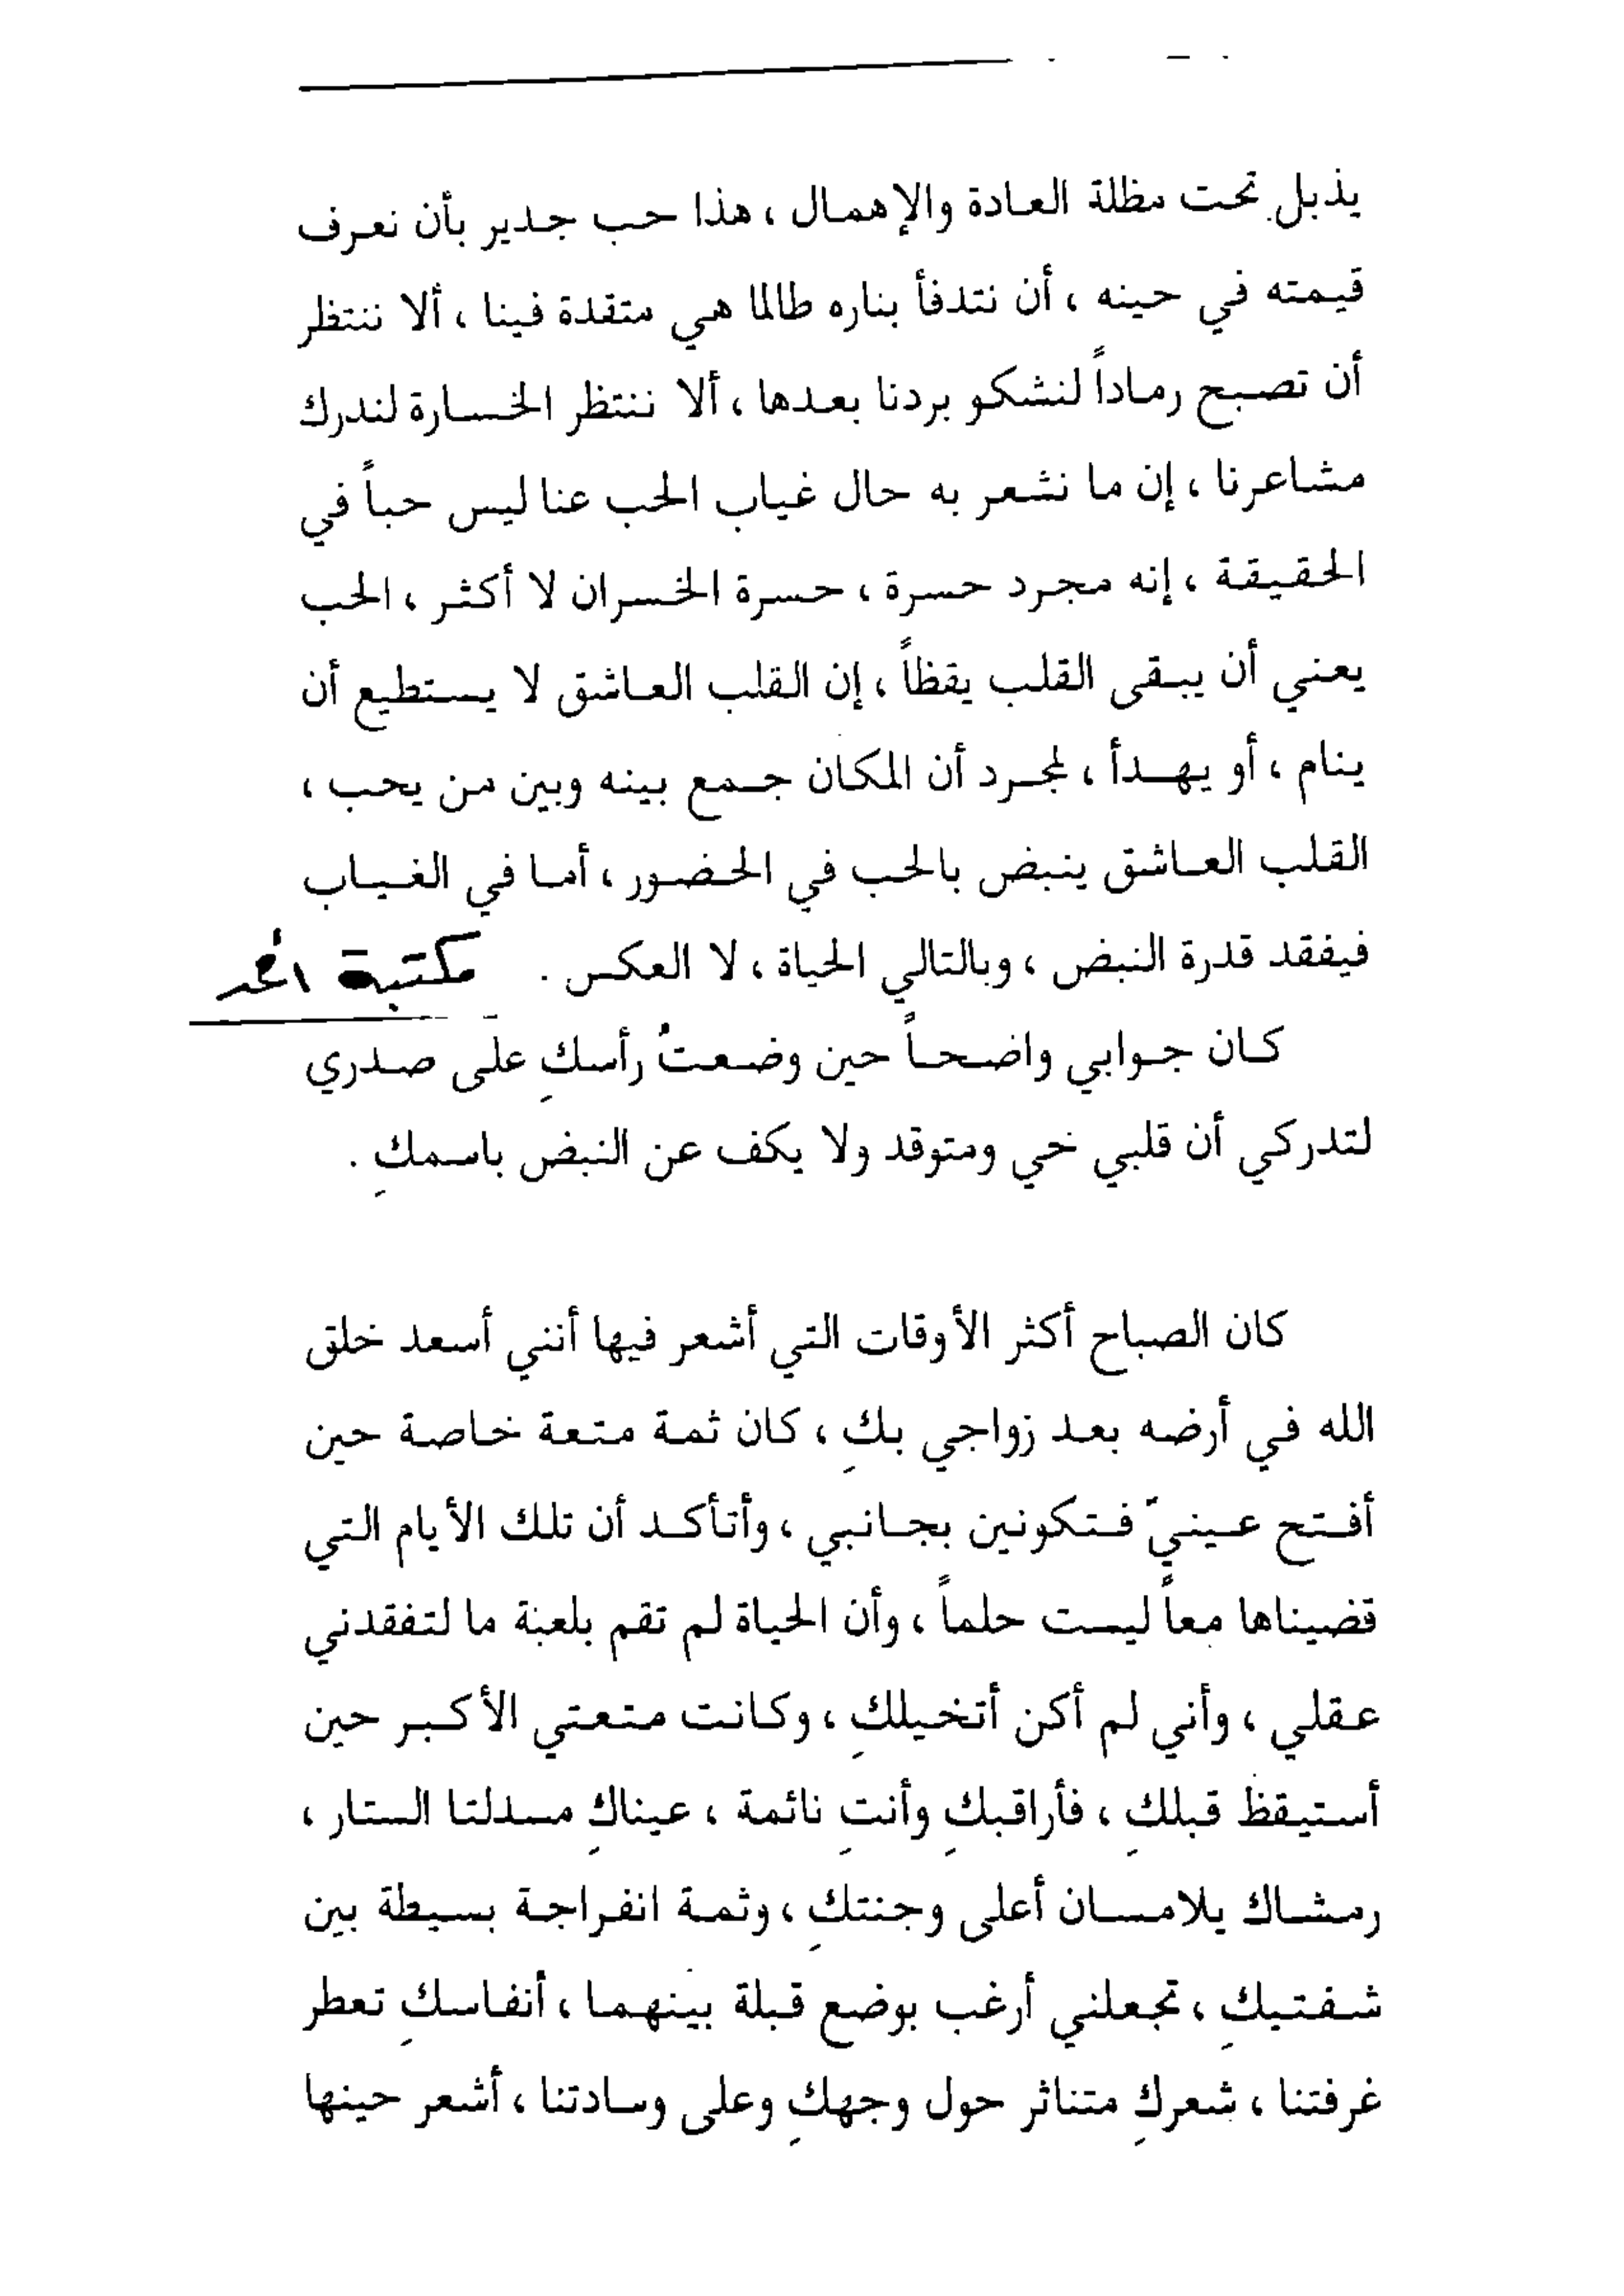 يذبل تحت مظلة العادة والإهمال ، هذا حب جدير بأن نعرف
قيمته في حينه ، أن نتدفأ بناره طالما هي متقدة فينا ، ألا ننتظر
أن تصبح رماداً لنشكو بردنا بعدها ، ألا ننتظر الخسارة لندرك
مشاعرنا ، إن ما نشعر به حال غياب الحب عنا ليس حباً في
الحقيقة ، إنه مجرد حسرة ، حسرة الخسران لا أكثر ، الحب
يعني أن يبقى القلب يقظاً ، إن القلب العاشق لا يستطيع أن
ينام ، أو يهدأ ، لمجرد أن المكان جمع بينه وبين من يحب ،
القلب العاشق ينبض بالحب في الحضور ، أما في الغياب
فيفقد قدرة النبض ، وبالتالي الحياة ، لا العكس .
مكتبة
كان جوابي واضحاً حين وضعتُ رأسكِ على صدري
لتدركي أن قلبي حي ومتوقد ولا يكف عن النبض باسمكِ .
كان الصباح أكثر الأوقات التي أشعر فيها أنني أسعد خلق
الله في أرضه بعد زواجي بكِ ، كان ثمة متعة خاصة حين
أفتح عينيّ فتكونين بجانبي ، وأتأكد أن تلك الأيام التي
قضيناها معاً ليست حلماً ، وأن الحياة لم تقم بلعبة ما لتفقدني
عقلي ، وأني لم أكن أتخيلكِ ، وكانت متعتي الأكبر حين
أستيقظ قبلكِ ، فأراقبكِ وأنتِ نائمة ، عيناكِ مسدلتا الستار ،
رمشاك يلامسان أعلى وجنتكِ ، وثمة انفراجة بسيطة بين
شفتيكِ ، تجعلني أرغب بوضع قبلة بينهما ، أنفاسكِ تعطر
غرفتنا ، شعركِ متناثر حول وجهكِ وعلى وسادتنا ، أشعر حينها